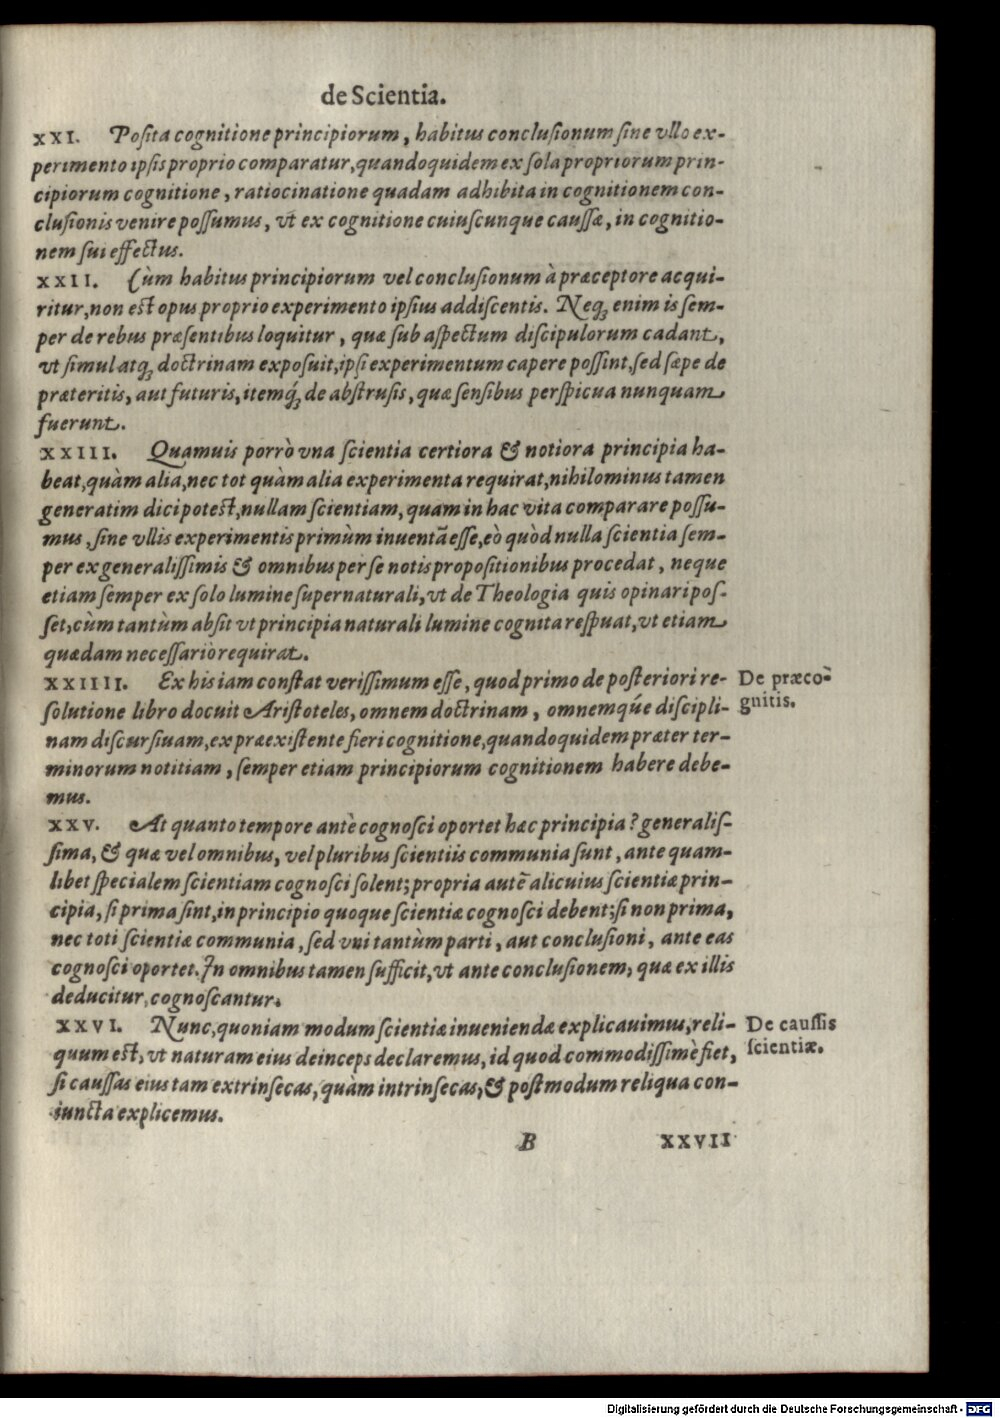 de Scientia.
XXI. Poſita cognitione principiorum, habitus concluſionum ſine vllo ex-
perimento ipſis proprio comparatur, quandoquidem ex ſola propriorum prin-
cipiorum cognitione, ratiocinatione quadam adhibita in cognitionem con-
cluſionis venire poſſumus, vt ex cognitione cuiuſcunque cauſſæ, in cognitio-
nem ſui effectus.
XXII. Cùm habitus principiorum vel concluſionum à præceptore acqui-
ritur, non eſt opus proprio experimento ipſius addiſcentis. Neq; enim is ſem-
per de rebus præſentibus loquitur, quæ ſub aſpectum diſcipulorum cadant,
vt ſimul atq; doctrinam expoſuit, ipſi experimentum capere poſſint, ſed ſæpe de
præteritis, aut futuris, itemq́; de abſtruſis, quæ ſenſibus perſpicua nunquam
fuerunt.
XXIII. Quamuis porrò vna ſcientia certiora & notiora principia ha-
beat, quàm alia, nec tot quàm alia experimenta requirat, nihilominus tamen
generatim dici poteſt, nullam ſcientiam, quam in hac vita comparare poſſu-
mus, ſine vllis experimentis primùm inuentã eſſe, eò quòd nulla ſcientia ſem-
per ex generaliſſimis & omnibus per ſe notis propoſitionibus procedat, neque
etiam ſemper ex ſolo lumine ſupernaturali, vt de Theologia quis opinari poſ-
ſet, cùm tantùm abſit vt principia naturali lumine cognita reſpuat, vt etiam
quædam neceſſariò requirat.
XXIIII. Ex his iam conſtat veriſſimum eſſe, quod primo de poſteriori re-
ſolutione libro docuit Ariſtoteles, omnem doctrinam, omnemq́ue diſcipli-
nam diſcurſiuam, ex præexiſtente fieri cognitione, quandoquidem præter ter-
minorum notitiam, ſemper etiam principiorum cognitionem habere debe-
mus.
De præco-
gnitis.
XXV. At quanto tempore antè cognoſci oportet hæc principia? generaliſ-
ſima, & quæ vel omnibus, vel pluribus ſcientiis communia ſunt, ante quam-
libet ſpecialem ſcientiam cognoſci ſolent; propria autẽ alicuius ſcientiæ prin-
cipia, ſi prima ſint, in principio quoque ſcientiæ cognoſci debent; ſi non prima,
nec toti ſcientiæ communia, ſed vni tantùm parti, aut concluſioni, ante eas
cognoſci oportet. In omnibus tamen ſufficit, vt ante concluſionem, quæ ex illis
deducitur, cognoſcantur.
XXVI. Nunc, quoniam modum ſcientiæ inueniendæ explicauimus, reli-
quum eſt, vt naturam eius deinceps declaremus, id quod commodiſſimè fiet,
ſi cauſſas eius tam extrinſecas, quàm intrinſecas, & poſtmodum reliqua con-
iuncta explicemus.
De cauſſis
ſcientiæ.
B XXVII
Digitalisierung gefördert durch die Deutsche Forschungsgemeinschaft - DFG